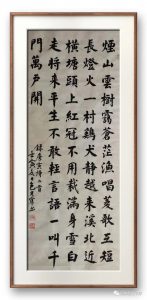 煙山雲樹靄蒼茫漁唱菱歌互短
長燈火一村鷄犬静越來溪北近
橫塘頭上紅冠不用裁滿身雪白
走將来平生不敢輕言語一叫千
門萬戶開
錄唐寅詩二首